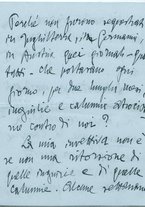 Perché non furono sequestrati
in Inghilterra, in Germania
in Austria quei giornali - quasi
tutti - che portarono ogni
giorno, per due lunghi mesi
ingiurie e calunnie atrocis
contro di noi?
La mia invettiva non è
se non una ritorsione di
quelle ingiurie e di quelle
calunnie. Alcune